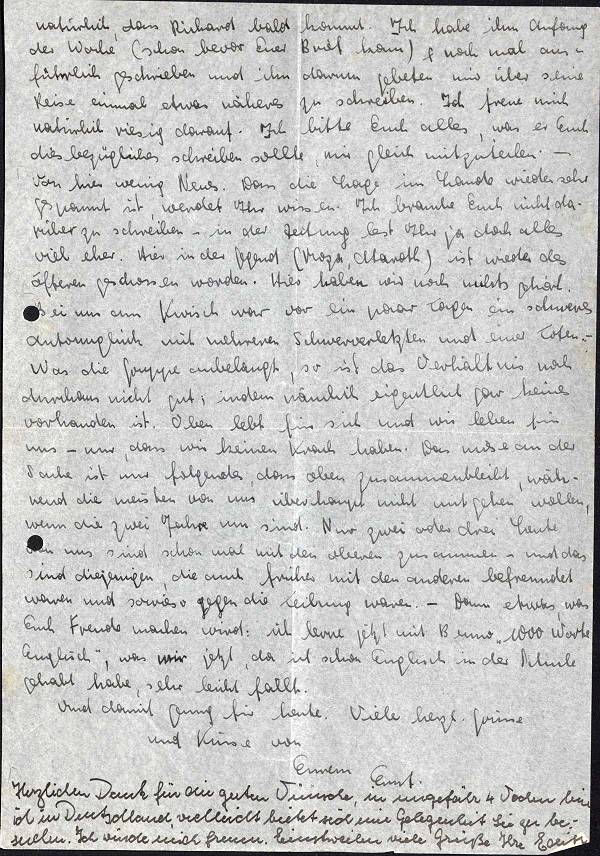 natürlich, dass Richard bald kommt. Ich habe ihm Anfang
der Woche (schon bevor Euer Brief kam) noch mal aus-
führlich geschrieben und ihn darum gebeten mir über seine
Reise einmal etwas näheres zu schreiben. Ich freue mich
natürlich riesig darauf. Ich bitte Euch alles, was er Euch
diesbezügliches schreiben sollte, mir gleich mitzuteilen. —
Von hier wenig Neues. Dass die Lage im Lande wieder sehr
gespannt ist, werdet Ihr wissen. Ich brauche Euch nicht da-
rüber zu schreiben – in der Zeitung lest Ihr ja doch alles
viel eher. Hier in der Gegend ist wieder des
öfteren geschossen worden. Hier haben wir noch nichts gehört.
Bei uns am Kwisch war vor ein paar Tagen ein schweres
Autounglück mit mehreren Schwerverletzten und einer Toten. –
Was die Gruppe anbelangt, so ist das Verhältnis noch
durchaus nicht gut; indem nämlich eigentlich gar keines
vorhanden ist. Oben lebt für sich und wir leben für
uns – nur, dass wir keinen Krach haben. Das miese an der
Sache ist nur folgendes, dass oben zusammenbleibt, wäh-
rend die meisten von uns überhaupt nicht mitgehen wollen,
wenn die zwei Jahre um sind. Nur zwei oder drei Leute
von uns sind schon mal mit den oberen zusammen – und das
sind diejenigen, die auch früher mit den anderen befreundet
waren und sowieso gegen die Leitung waren. – Dann etwas, was
Euch Freude machen wird: ich lerne jetzt mit Bruno „1000 Worte
Englisch", was mir jetzt, da ich schon Englisch in der Schule
gehabt habe, sehr leicht fällt.
Und damit genug für heute. Viele herzl. Grüsse
und Küsse von
Eurem Ernst.
Herzlichen Dank für die guten Wünsche, in ungefähr 4 Wochen bin
ich in Deutschland, vielleicht bietet sich eine Gelegenheit Sie zu be-
suchen. Ich würde mich freuen. Einstweilen viele Grüße Ihre Edith